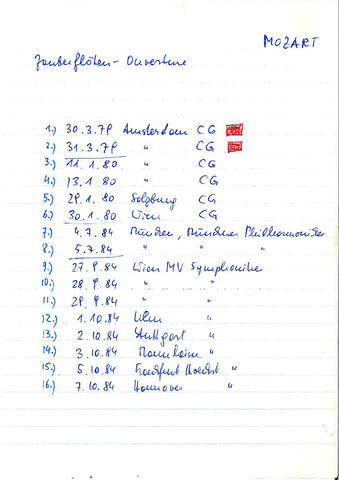 MOZART
Zauberflöten - Ouverture
1.) 30.3.79 Amsterdam CG
2.) 31.3.79 " CG
3.) 11.1.80 " CG
4.) 13.1.80 " CG
5.) 29.1.80 Salzburg CG
6.) 30.1.80 Wien CG
7.) 4.7.84 München, Münchner Philharmoniker
8.) 5.7.84 " " "
9.) 27.9.84 Wien MV Symphoniker
10.) 28.9.84 " "
11.) 29.9.84 " "
12.) 1.10.84 Ulm "
13.) 2.10.84 Stuttgart "
14.) 3.10.84 Mannheim "
15.) 5.10.84 Frankfurt Hoechst "
16.) 7.10.84 Hannover "